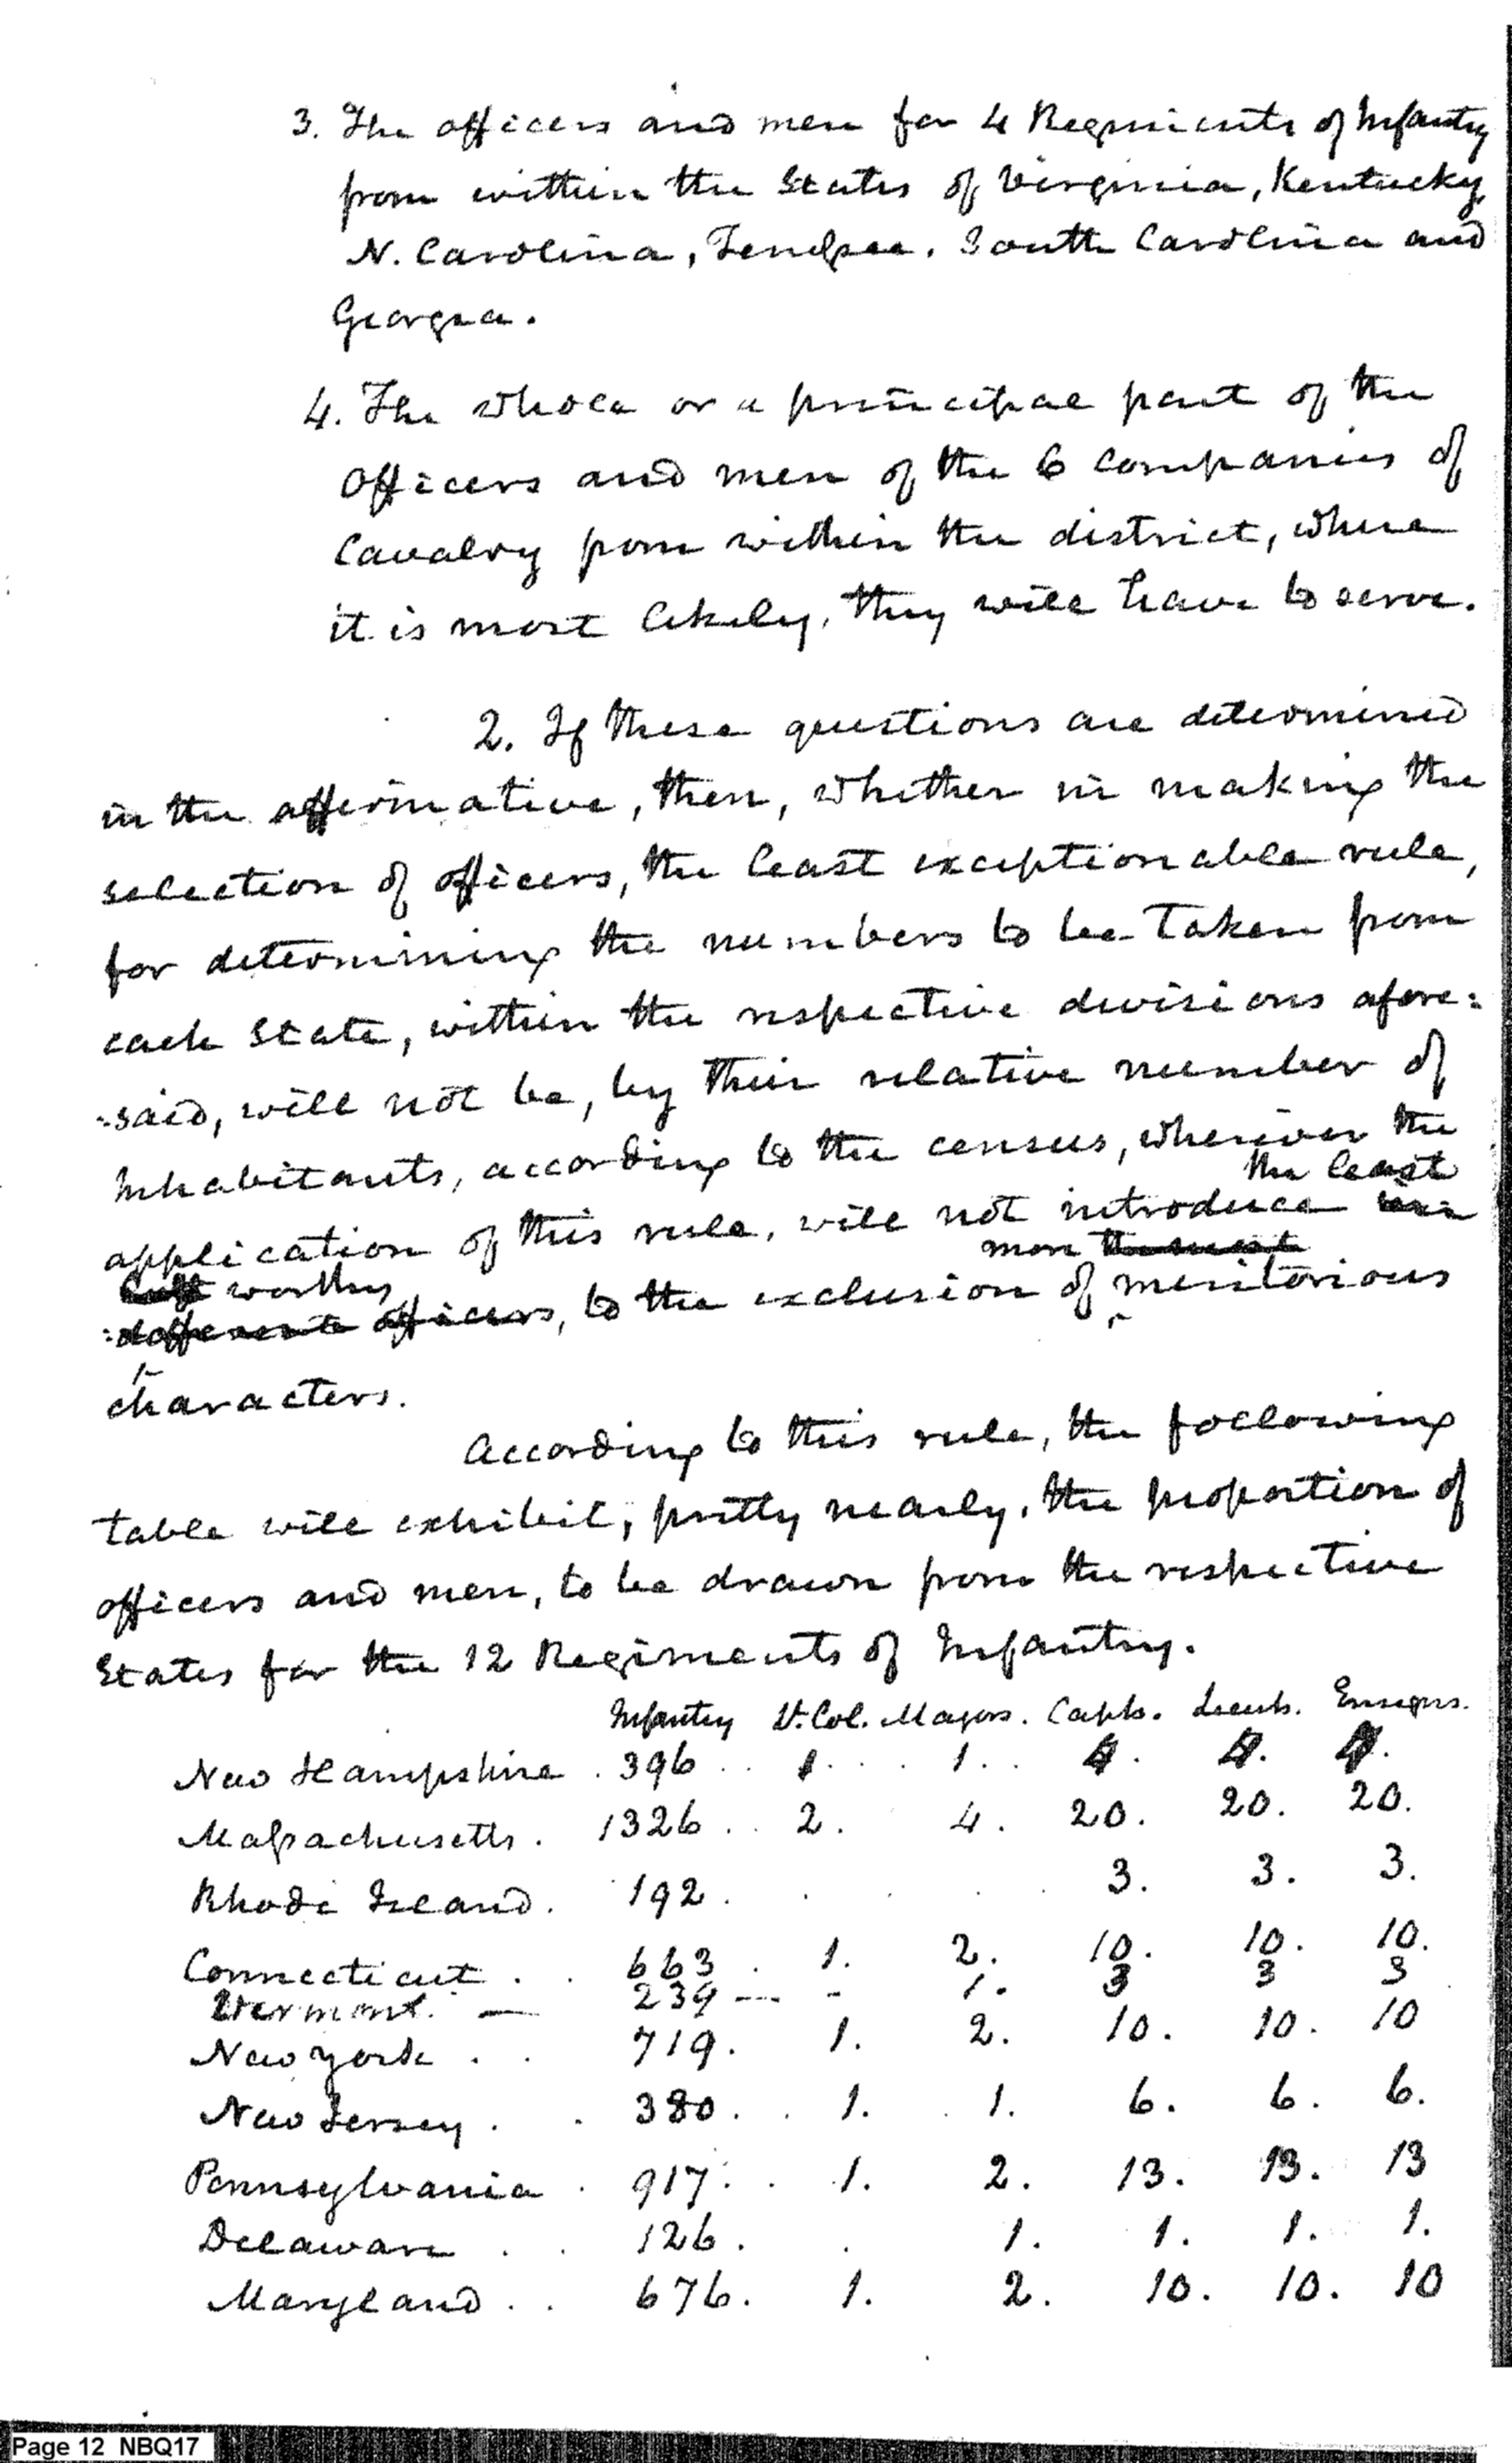 3. The officers and men for 4 Regiments of Infantry
from within the States of Virginia, Kentucky,
N. Carolina, Tennessee, South Carolina and
Georgia.
4. The whole or a principal part of the
Officers and men of the 6 Companies of
Cavalry from within the district, where
it is most likely, they will have to serve.
2. If these questions are determined
in the affirmative, then, whether in making the
selection of officers, the least exceptionable rule,
for determining the numbers to be taken from
each State, within the respective divisions afore:
:said, will not be, by their relative number of
Inhabitants, according to the census, wherever the
the least
application of this rule, will not introduce
more the most
worthy
officers, to the exclusion of meritorious
characters.
According to this rule, the following
table will exhibit, pretty nearly, the proportion of
officers and men, to be drawn from the respective
States for the 12 Regiments of Infantry.
Infantry Lt. Col. Majors. Capts. Lieuts. Ensigns.
New Hampshire . 396 . . 1 . . . 1 . .
Massachusetts . 1326 . . 2 . 4 . 20. 20. 20.
Rhode Island. 192 . . . . 3. 3. 3.
Connecticut . . 663 . 1. 2. 10. 10. 10.
Vermont. — 239 --- - 1. 3 3 3
New York . . 719. 1. 2. 10. 10. 10
New Jersey . . 380. . 1. . 1. 6. 6. 6.
Pennsylvania . 917. . 1. 2. 13. 13. 13
Delaware . . 126. . 1. 1. 1. 1.
Maryland . . 676. 1. 2. 10. 10. 10
Page 12 NBQ17